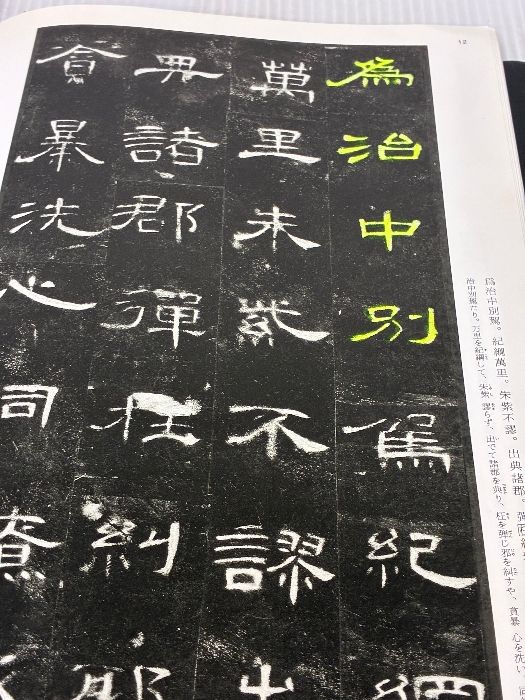 12
爲治中別駕紀綱
萬里朱紫不謬出
典諸郡彈枉糾邪
貪暴洗心同僚
爲治中別駕。紀綱萬里。朱紫不謬。出典諸郡。彈枉糾
治中別駕たり。万里を紀綱して、朱紫 謬らず、出でて諸郡を典り、枉を弾じ邪を糾すや、貪暴 心を洗い、